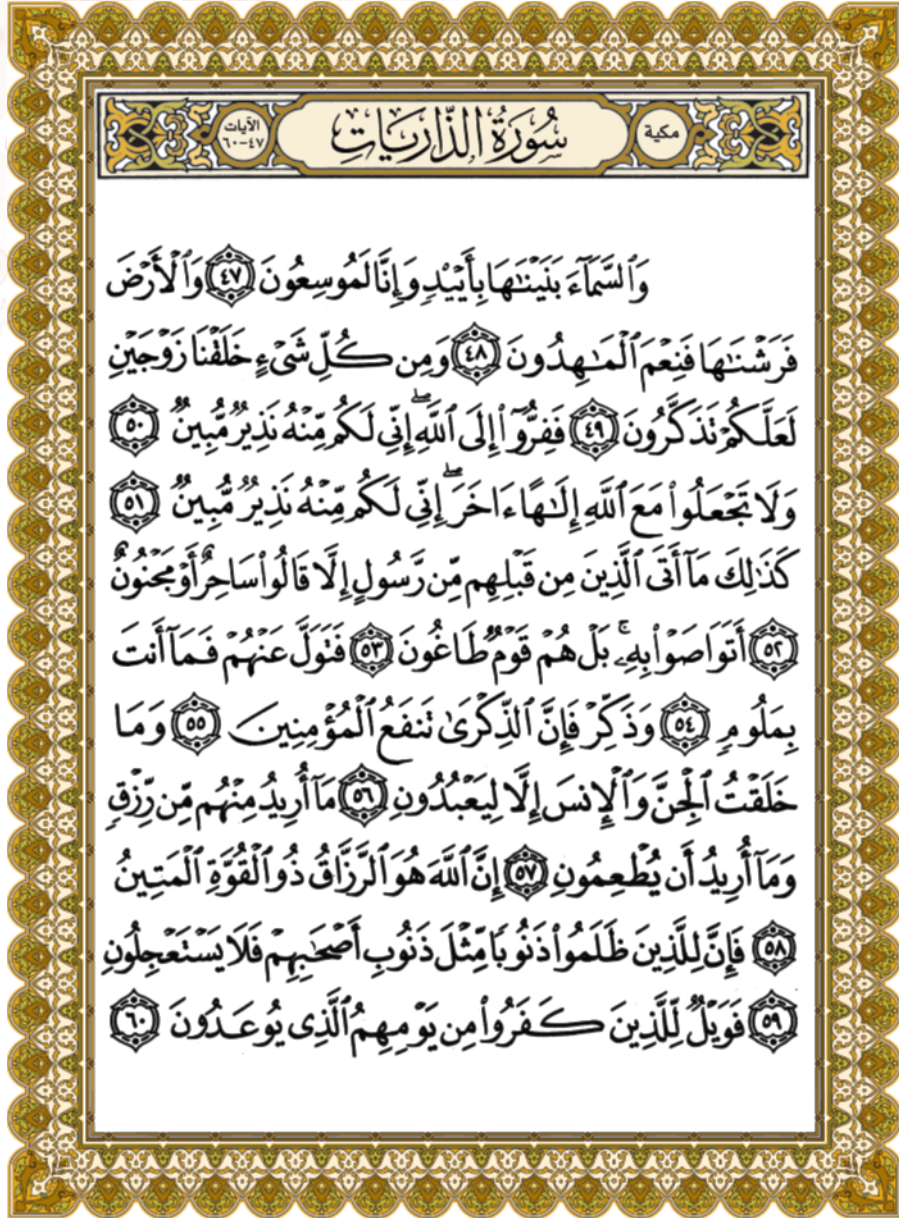 مكية
سُورَةُ الذَّارِيَاتِ
الآيات ٤٧-٦٠
وَٱلسَّمَآءَ بَنَيْنَٰهَا بِأَيْي۟دٍ وَإِنَّا لَمُوسِعُونَ ٤٧ وَٱلْأَرْضَ
فَرَشْنَٰهَا فَنِعْمَ ٱلْمَٰهِدُونَ ٤٨ وَمِن كُلِّ شَىْءٍ خَلَقْنَا زَوْجَيْنِ
لَعَلَّكُمْ تَذَكَّرُونَ ٤٩ فَفِرُّوٓا۟ إِلَى ٱللَّهِ ۖ إِنِّى لَكُم مِّنْهُ نَذِيرٌ مُّبِينٌ ٥٠
وَلَا تَجْعَلُوا۟ مَعَ ٱللَّهِ إِلَٰهًا ءَاخَرَ ۖ إِنِّى لَكُم مِّنْهُ نَذِيرٌ مُّبِينٌ ٥١
كَذَٰلِكَ مَآ أَتَى ٱلَّذِينَ مِن قَبْلِهِم مِّن رَّسُولٍ إِلَّا قَالُوا۟ سَاحِرٌ أَوْ مَجْنُونٌ
٥٢ أَتَوَاصَوْا۟ بِهِۦ ۚ بَلْ هُمْ قَوْمٌ طَاغُونَ ٥٣ فَتَوَلَّ عَنْهُمْ فَمَآ أَنتَ
بِمَلُومٍ ٥٤ وَذَكِّرْ فَإِنَّ ٱلذِّكْرَىٰ تَنفَعُ ٱلْمُؤْمِنِينَ ٥٥ وَمَا
خَلَقْتُ ٱلْجِنَّ وَٱلْإِنسَ إِلَّا لِيَعْبُدُونِ ٥٦ مَآ أُرِيدُ مِنْهُم مِّن رِّزْقٍ
وَمَآ أُرِيدُ أَن يُطْعِمُونِ ٥٧ إِنَّ ٱللَّهَ هُوَ ٱلرَّزَّاقُ ذُو ٱلْقُوَّةِ ٱلْمَتِينُ
٥٨ فَإِنَّ لِلَّذِينَ ظَلَمُوا۟ ذَنُوبًا مِّثْلَ ذَنُوبِ أَصْحَٰبِهِمْ فَلَا يَسْتَعْجِلُونِ
٥٩ فَوَيْلٌ لِّلَّذِينَ كَفَرُوا۟ مِن يَوْمِهِمُ ٱلَّذِى يُوعَدُونَ ٦٠